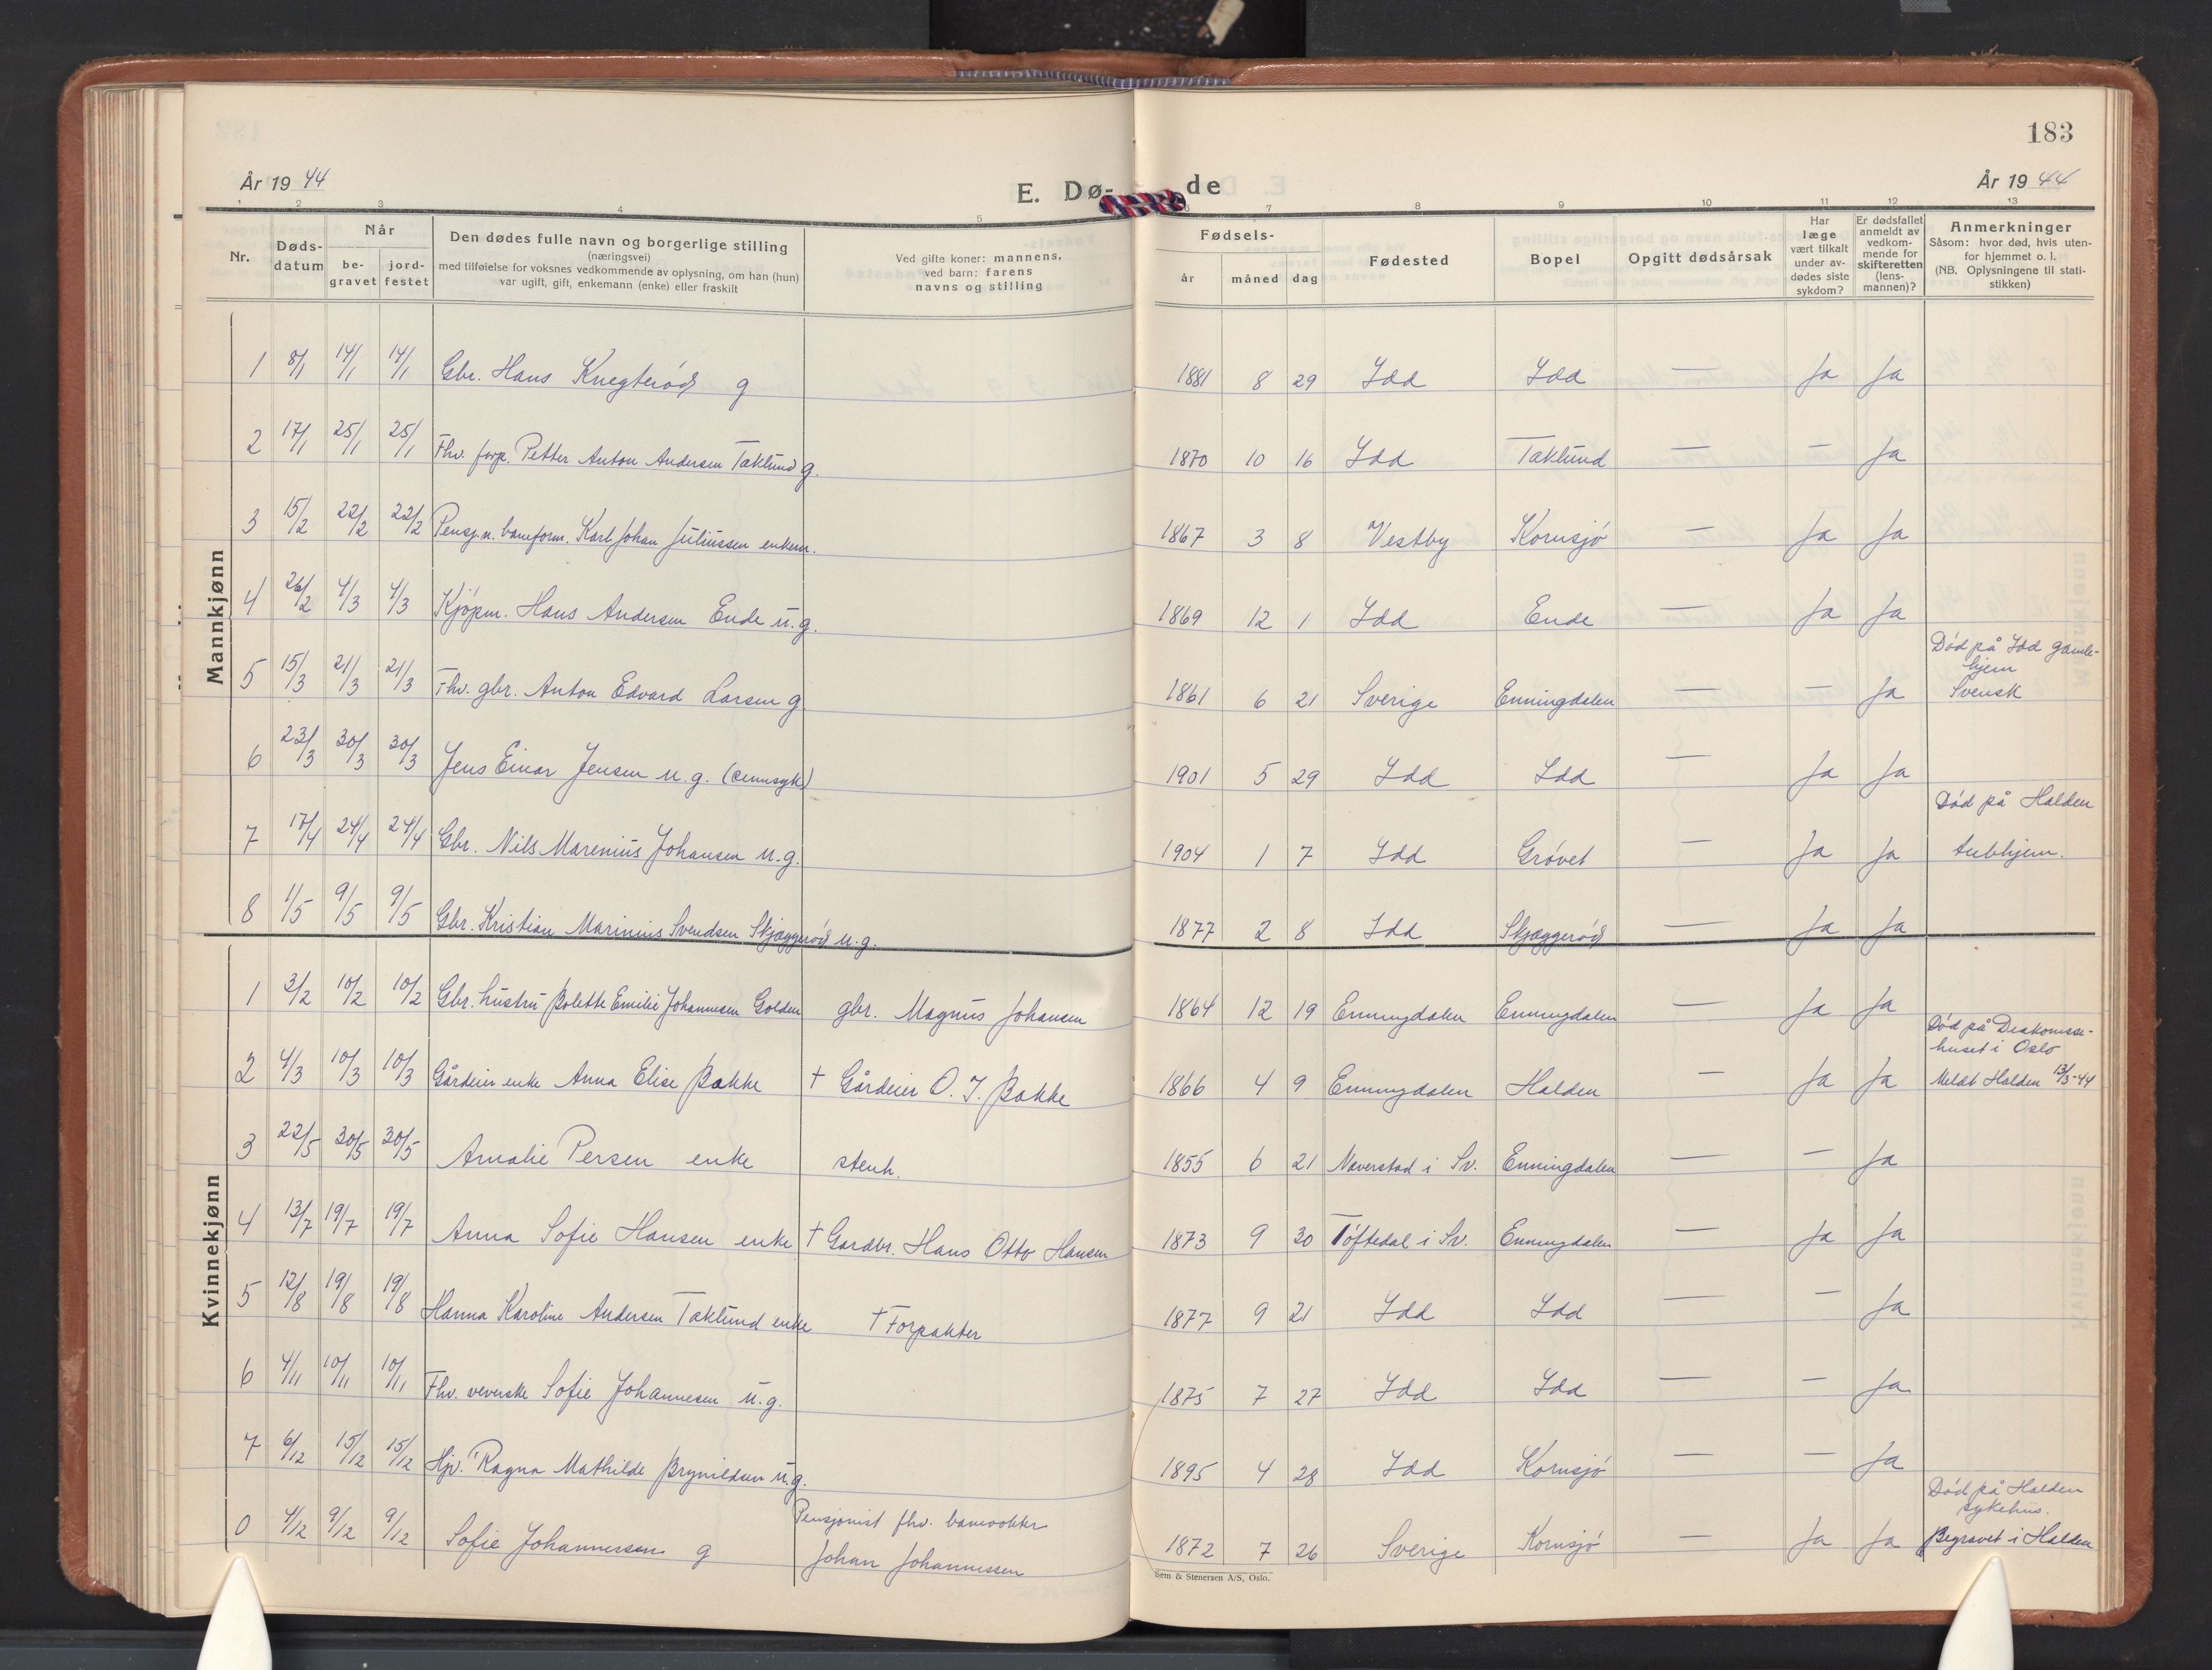 183
År 1944
E. Dø-
de
År 1944
1 2 3 4 5 6 7 8 9 10 11 12 13
Nr.
Døds-
datum
Når
be-
gravet
jord-
festet
Den dødes fulle navn og borgerlige stilling
(næringsvei)
med tilføielse for voksnes vedkommende av oplysning, om han (hun)
var ugift, gift, enkemann (enke) eller fraskilt
Ved gifte koner: mannens,
ved barn: farens
navns og stilling
Fødsels-
år måned dag
Fødested
Bopel
Opgitt dødsårsak
Har
læge
vært tilkalt
under av-
dødes siste
sykdom?
Er dødsfallet
anmeldt av
vedkom-
mende for
skifteretten
(lens-
mannen)?
Anmerkninger
Såsom: hvor død, hvis uten-
for hjemmet o. l.
(NB. Oplysningene til stati-
stikken)
Mannkjønn
1 8/1 14/1 14/1 Gbr. Hans Knegterød g 1881 8 29 Idd Idd — Ja Ja
2 17/1 25/1 25/1 Fhv. forp. Petter Anton Andersen Taklund g. 1870 10 16 Idd Taklund — — Ja
3 15/2 22/2 22/2 Pensj.n. baneform. Karl Johan Juliussen enkem. 1867 3 8 Vestby Kornsjø — Ja Ja
4 26/2 4/3 4/3 Kjøpm. Hans Andersen Ende u.g. 1869 12 1 Idd Ende — Ja Ja
5 15/3 21/3 21/3 Fhv. gbr. Anton Edvard Larsen g 1861 6 21 Sverige Enningdalen — — Ja Død på Idd gamle-
hjem
Svensk
6 23/3 30/3 30/3 Jens Einar Jensen u.g. (sinnsyk) 1901 5 29 Idd Idd — Ja Ja
7 17/4 24/4 24/4 Gbr. Nils Marenius Johansen u.g. 1904 1 7 Idd Grøvet — Ja Ja Død på Halden
tubhjem.
8 1/5 9/5 9/5 Gbr. Kristian Marinius Svendsen Skjæggerød u.g. 1877 2 8 Idd Skjæggerød — Ja Ja
Kvinnekjønn
1 3/2 10/2 10/2 Gbr. hustru Bolette Emilie Johannesen Golden gbr. Magnus Johansen 1864 12 19 Enningdalen Enningdalen — Ja Ja
2 4/3 10/3 10/3 Gårdeier enke Anna Elise Bakke † Gårdeier O. J. Bakke 1866 4 9 Enningdalen Halden — Ja Ja Død på Diakonisse-
huset i Oslo
Meldt Halden 13/3-44
3 22/5 30/5 30/5 Amalie Persen enke stenh. 1855 6 21 Naverstad i Sv. Enningdalen — — Ja
4 13/7 19/7 19/7 Anna Sofie Hansen enke † Gardbr. Hans Otto Hansen 1873 9 30 Töftedal i Sv. Enningdalen — Ja Ja
5 12/8 19/8 19/8 Hanna Karoline Andersen Taklund enke † Forpakter 1877 9 21 Idd Idd — — Ja
6 4/11 10/11 10/11 Fhv. veverske Sofie Johannesen u.g. 1875 7 27 Idd Idd — — Ja
7 6/12 15/12 15/12 Hjv. Ragna Mathilde Brynildsen u.g. 1895 4 28 Idd Kornsjø — — Ja
0 4/12 9/12 9/12 Sofie Johannessen g Pensjonist fhv. banevokter
Johan Johannessen 1872 7 26 Sverige Kornsjø — Ja Ja Død på Halden
sykehus.
Begravet i Halden
Sem & Stenersen A/S, Oslo.